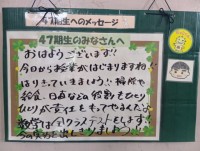 47期生へのメッセージ
47期生のみなさんへ
おはようございます!!
今日から授業がはじまりますね!!
はりきっていきましょう!! 掃除や
給食、日直などの役割もひとり
ひとりが責任をもってやるんだよ。
数学は全クラステストをします!!